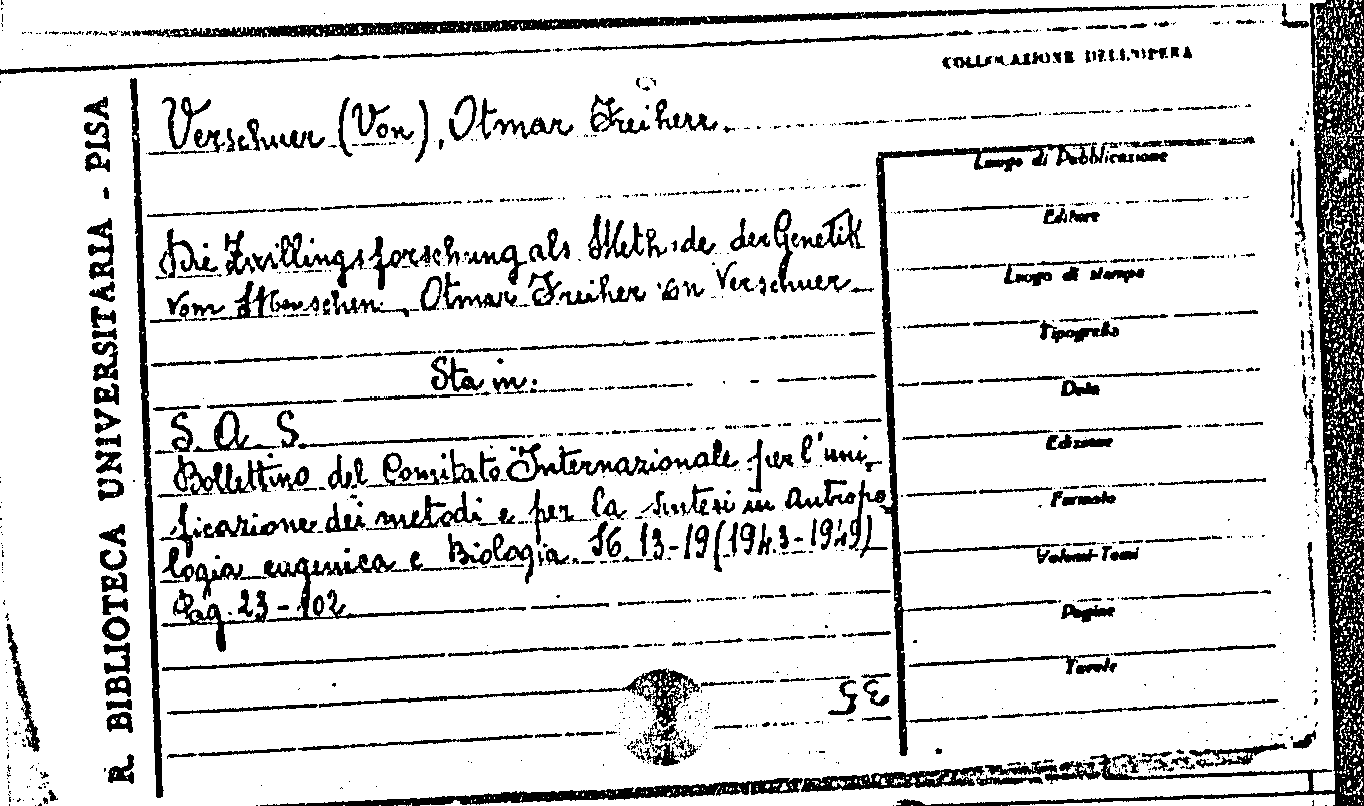 COLLOCAZIONE DELL'OPERA
R. BIBLIOTECA UNIVERSITARIA - PISA
Verschuer (Von), Otmar Freiherr.
Die Zwillingsforschung als Methode der Genetik
vom Menschen. Otmar Freiher von Verschuer.
Sta in:
S. A. S.
Bollettino del Comitato Internazionale per l'uni-
ficazione dei metodi e per la sintesi in Antropo-
logia eugenica e Biologia. N. 13-19 (1943-1949)
Pag. 23-102
Luogo di Pubblicazione
Editore
Luogo di stampa
Tipografia
Data
Edizione
Formato
Volumi-Tomi
Pagine
Tavole